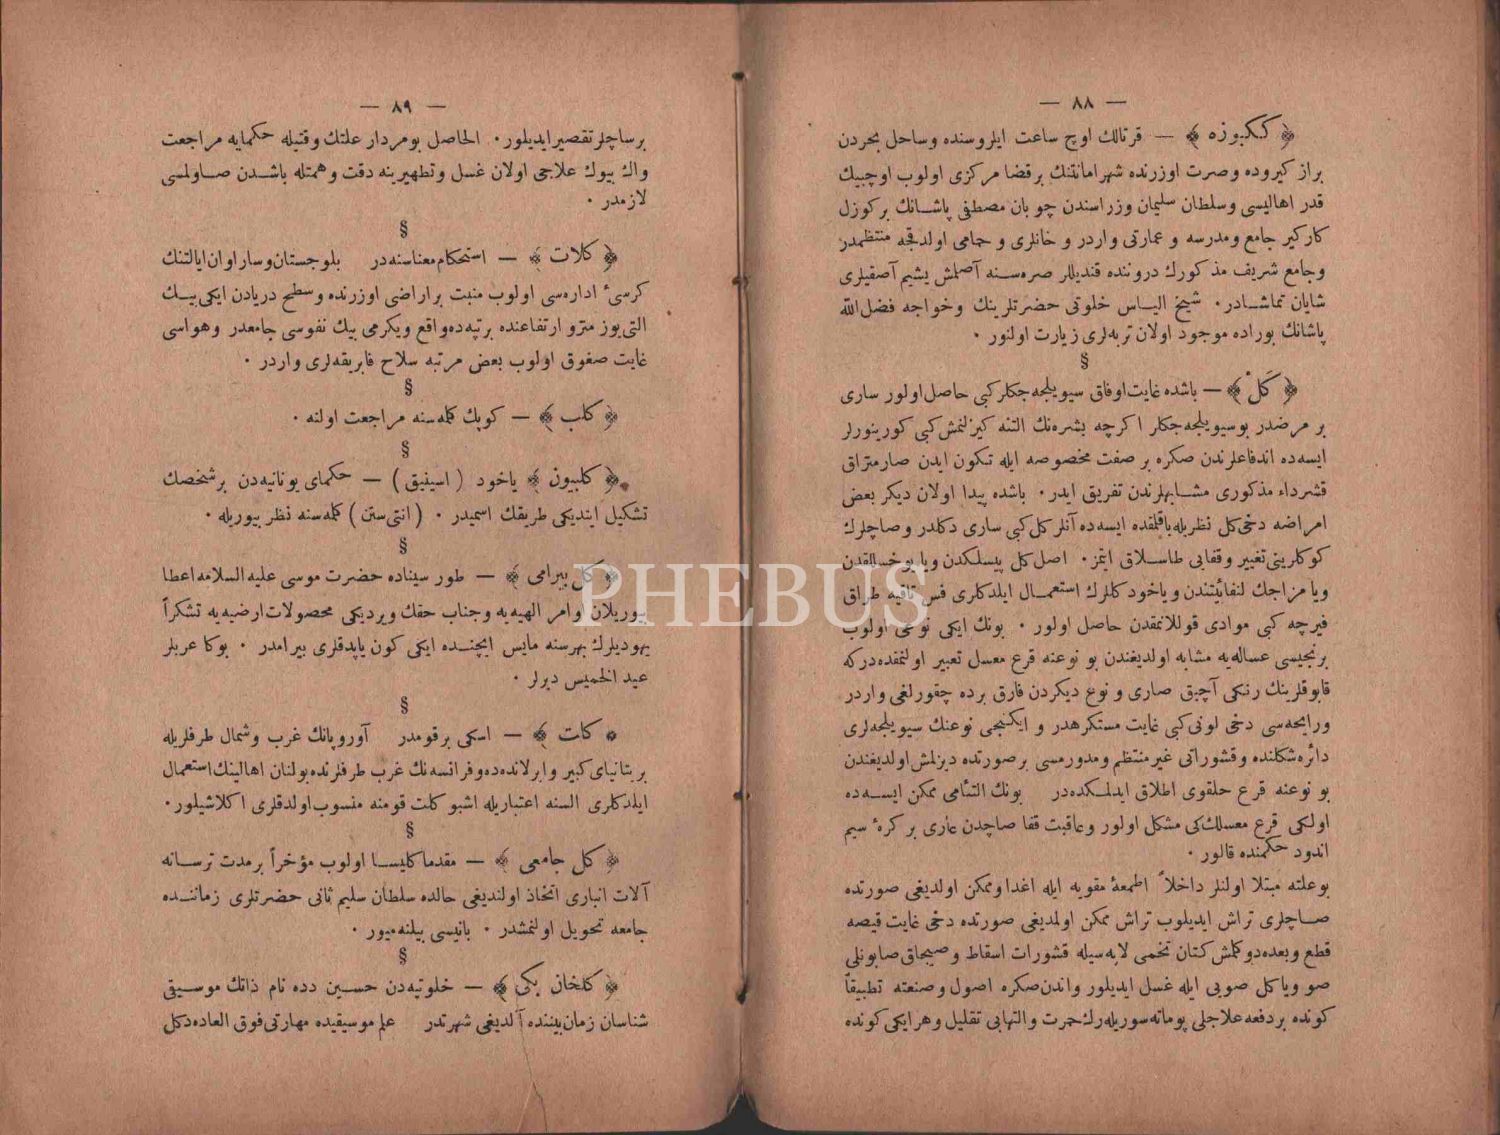 — ٨٨ —
﴿ ككبوزه ﴾ — قرتالك اوچ ساعت ايلروسنده وساحل بحردن
براز كيروده وصرت اوزرنده شهر امانتنك بر قضا مركزى اولوب اوچبيك
قدر اهاليسى وسلطان سليمان وزراسندن چوبان مصطفى پاشانك بر كوزل
كاركير جامع ومدرسه و عمارتى واردر و خانلرى و حمامى اولدقجه منتظمدر
وجامع شريف مذكورك دروننده قنديللر صره سنه آصلمش يشيم آصقيلرى
شايان تماشادر. شيخ الياس خلوتى حضرتلرينك وخواجه فضل الله
پاشانك بوراده موجود اولان تربه لرى زيارت اولنور .
§
﴿ كَلْ ﴾ — باشده غايت اوفاق سيويلجه جكلر كبى حاصل اولور سارى
بر مرضدر بوسيويلجه جكلر اكرچه بشره نك التنه كيزلنمش كبى كورينورلر
ايسه ده اندفاعلرندن صكره بر صفت مخصوصه ايله تكون ايدن صارمتراق
قشر داء مذكورى مشابهلرندن تفريق ايدر. باشده پيدا اولان ديكر بعض
امراضه دخى كل نظريله باقلمقده ايسه ده آنلر كل كبى سارى دكلدر و صاچلرك
كوكلرينى تغيير وقفايى طاسلاق ايتمز. اصل كل پيسلكدن ويا يوخسللقدن
ويا مزاجك لنفائيتندن وياخود كللرك استعمال ايلدكلرى فس تاقيه طراق
فيرچه كبى موادى قوللانمقدن حاصل اولور . بونك ايكى نوعى اولوب
برنجيسى عساله يه مشابه اولديغندن بو نوعنه قرع معسل تعبير اولنمقده دركه
قابوقلرينك رنكى آچيق صارى و نوع ديكردن فارق برده چقورلغى واردر
ورايحه سى دخى لونى كبى غايت مستكرهدر و ايكنجى نوعنك سيويلجه لرى
دائره شكلنده وقشوراتى غير منتظم ومدورمسى بر صورتده ديزلمش اولديغندن
بو نوعنه قرع حلقوى اطلاق ايدلمكده در بونك التئامى ممكن ايسه ده
اولكى قرع معسللك كى مشكل اولور وعاقبت قفا صاچدن عارى بر كرهٔ سيم
اندود حكمنده قالور .
بوعلته مبتلا اولنلر داخلاً اطعمهٔ مقويه ايله اغدا وممكن اولديغى صورتده
صاچلرى تراش ايديلوب تراش ممكن اولمديغى صورتده دخى غايت قيصه
قطع وبعده دوكلمش كتان تخمى لاپه سيله قشورات اسقاط و صيجاق صابونلى
صو ويا كل صويى ايله غسل ايديلور واندن صكره اصول وصنعته تطبيقاً
كونده بر دفعه علاجلى پوماته سوريله رك حمرت والتهابى تقليل وهر ايكى كونده
— ٨٩ —
بر ساچلر تقصير ايديلور. الحاصل بو مردار علتك وقتيله حكمايه مراجعت
واك بيوك علاجى اولان غسل وتطهيرينه دقت وهمتله باشدن صاولمسى
لازمدر .
§
﴿ كلات ﴾ — استحكام معناسنه در بلوجستان وساراوان ايالتنك
كرسىٔ اداره سى اولوب منبت بر اراضى اوزرنده وسطح دريادن ايكى بيك
التى يوز مترو ارتفاعنده بر تپه ده واقع ويكرمى بيك نفوسى جامعدر وهواسى
غايت صغوق اولوب بعض مرتبه سلاح فابريقه لرى واردر .
§
﴿ كلب ﴾ — كوپك كلمه سنه مراجعت اولنه .
§
﴿ كلبيون ﴾ ياخود ( اسينيق ) — حكماى يونانيه دن بر شخصك
تشكيل ايتديكى طريقك اسميدر . ( انتى ستن ) كلمه سنه نظر بيوريله .
§
﴿ كل بيرامى ﴾ — طور سيناده حضرت موسى عليه السلامه اعطا
بيوريلان اوامر الهيه يه وجناب حقك ويرديكى محصولات ارضيه يه تشكراً
يهوديلرك بهر سنه مايس ايچنده ايكى كون ياپدقلرى بيرامدر . بوكا عربلر
عيد الخميس ديرلر .
§
﴿ كلت ﴾ — اسكى بر قومدر آوروپانك غرب وشمال طرفلريله
بريتانياى كبير وايرلانده ده وفرانسه نك غرب طرفلرنده بولنان اهالينك استعمال
ايلدكلرى السنه اعتباريله اشبو كلت قومنه منسوب اولدقلرى اكلاشيلور.
§
﴿ كل جامعى ﴾ — مقدما كليسا اولوب مؤخراً بر مدت ترسانه
آلات انبارى اتخاذ اولنديغى حالده سلطان سليم ثانى حضرتلرى زماننده
جامعه تحويل اولنمشدر . بانيسى بيلنه ميور .
§
﴿ كلخان بكى ﴾ — خلوتيه دن حسين دده نام ذاتك موسيقى
شناسان زمان بيننده آلديغى شهرتدر علم موسيقيده مهارتى فوق العاده دكل
PHEBUS